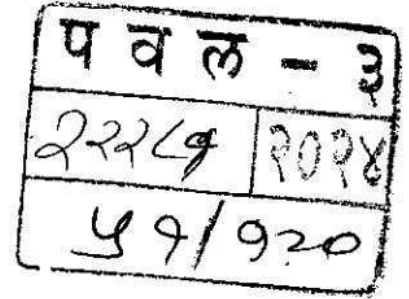 प व ल - ३
२२२८१ २०२४
५१/१२०